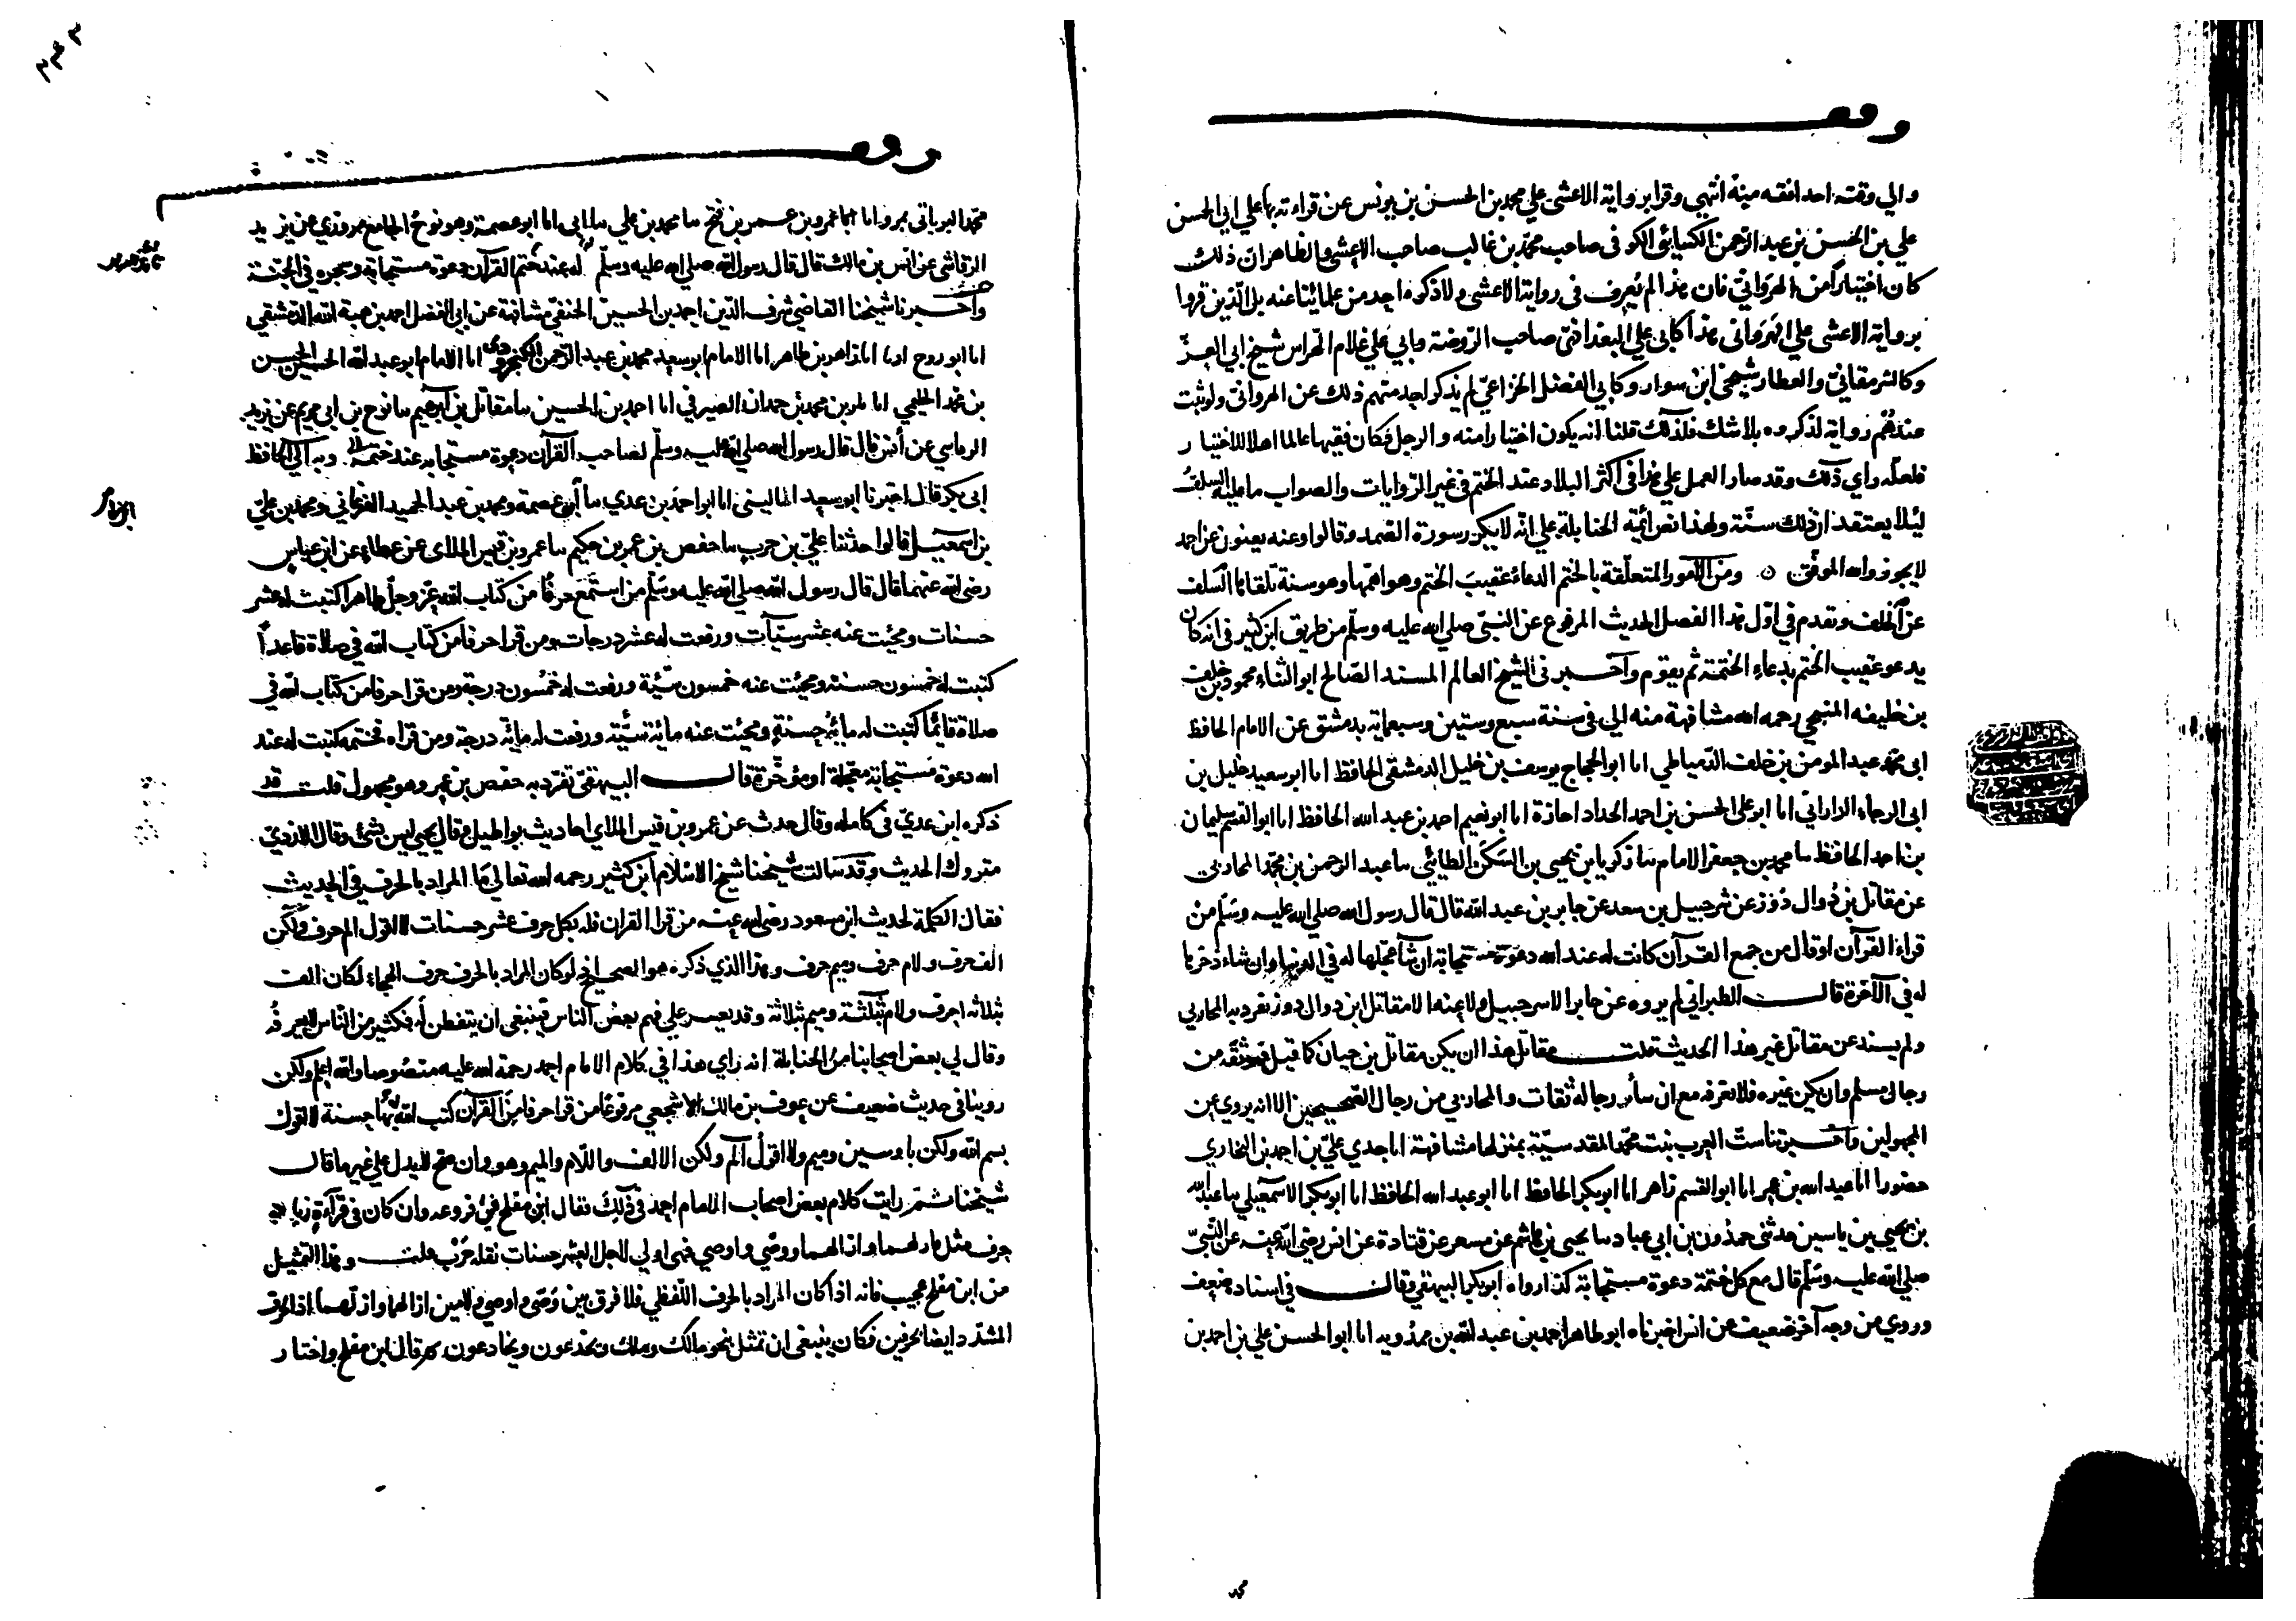 وقف
والي وقته احد افقه منه انتهي وقرا برواية الاعشى علي محمد بن الحسن بن يونس عن قراءته بها علي ابي الحسن
علي بن الحسن بن عبد الرحمن الكسائي الكوفى صاحب محمد بن غالب صاحب الاعشى والظاهر ان ذلك
كان اختيارا من النهرواني فان هذا لم يعرف في رواية الاعشى ولا ذكره احد من علمائنا عنه بل الذين قروا
برواية الاعشى علي النهرواني هذا كابي علي البغدادي صاحب الروضة وابي علي غلام الهراس شيخ ابي العز
وكالشرمقاني والعطار شيخي ابن سوار وكابي الفضل الخزاعي لم يذكر احد منهم ذلك عن النهرواني ولو ثبت
عندهم رواية لذكروه بلا شك فلذلك قلنا انه يكون اختيارا منه والرجل فكان فقيها عالما اهلا للاختيار
فلعله راي ذلك وقد صار العمل علي هذا في اكثر البلاد عند الختم في غير الروايات والصواب ما عليه السلف
ليلا يعتقد ان ذلك سنة ولهذا نص ائمة الحنابلة علي انه لا يكرر سورة الصمد وقالوا وعنه يعنون عن احمد
لا يجوز والله الموفق ومن الامور المتعلقة بالختم الدعاء عقيب الختم وهو اهمها وهو سنة تلقاها السلف
عن الخلف وتقدم في اول هذا الفصل الحديث المرفوع عن النبي صلي الله عليه وسلم من طريق ابن كثير في انه كان
يدعو عقيب الختم بدعاء الختمة ثم يقوم واخبرنى الشيخ العالم المسند الصالح ابو الثناء محمود بن خلف
بن خليفه المنبجي رحمه الله مشافهة منه الي في سنة سبع وستين وسبعماية بدمشق عن الامام الحافظ
ابى محمد عبد المومن بن خلف الدمياطي اما ابو الحجاج يوسف بن خليل الدمشقي الحافظ اما ابو سعيد خليل بن
ابى الرجاء الراراني اما ابو علي الحسن بن احمد الحداد اجازة اما ابو نعيم احمد بن عبد الله الحافظ اما ابو القسم سليمان
بن احمد الحافظ سا محمد بن جعفر الامام سا زكريا بن يحيى بن السكن الطائي سا عبد الرحمن بن محمد المحاربي
عن مقاتل بن دوال دوز عن شرحبيل بن سعد عن جابر بن عبد الله قال قال رسول الله صلي الله عليه وسلم من
قراء القرآن او قال من جمع القرآن كانت له عند الله دعوة مستجابة ان شآ عجلها له في الدنيا وان شاء دخرها
له في الآخرة قال الطبراني لم يروه عن جابر الا شرحبيل ولا عنه الا مقاتل ابن دوال دوز تفرد به المحاربي
ولم يسند عن مقاتل غير هذا الحديث قلت مقاتل هذا ان يكن مقاتل بن حيان كما قيل فهو ثقه من
رجال مسلم وان يكن غيره فلا نعرفه مع ان سائر رجاله ثقات والمحاربي من رجال الصحيحين الا انه يروي عن
المجهولين واخبرتنا ست العرب بنت محمد المقدسية بمنزلها مشافهة اما جدي علي بن احمد بن البخاري
حضورا اما عبد الله بن عمر اما ابو القسم زاهر اما ابو بكر الحافظ اما ابو عبد الله الحافظ اما ابو بكر الاسمعيلي سا عبد الله
بن يحيي بن ياسين حدثني حمدون بن ابي عباد سا يحيى بن هاشم عن مسعر عن قتادة عن انس رضي الله عنه عن النبي
صلي الله عليه وسلم قال مع كل ختمة دعوة مستجابة كذا رواه ابو بكر البيهقي وقال في اسناده ضعف
وروي من وجه آخر ضعيف عن انس اخبرناه ابو طاهر احمد بن عبد الله بن ممدويه اما ابو الحسن علي بن احمد بن
محمد
وقف
محمد البوباتى بمرو اما ابا عمرو بن عمر بن فتح سا محمد بن علي سا ابي اما ابو عصمة وهو نوح الجامع مروزي عن يزيد
الرقاشي عن انس بن مالك قال قال رسول الله صلي الله عليه وسلم له عند ختم القرآن دعوة مستجابة وشجره في الجنة
واخبرنا شيخنا القاضي شرف الدين احمد بن الحسين الحنفي مشافهة عن ابي الفضل احمد بن هبة الله الدمشقي
اما ابو روح اما زاهر بن طاهر اما الامام ابو سعيد محمد بن عبد الرحمن الكنجرودى اما الامام ابو عبد الله الحسين بن الحسن
بن محمد الحليمي اما بكر بن محمد بن حمدان الصيرفي اما احمد بن الحسين سا مقاتل بن ابراهيم سا نوح بن ابي مريم عن يزيد
الرقاشي عن أنس قال قال رسول الله صلي الله عليه وسلم لصاحب القرآن دعوة مستجابه عند ختمه وبه الي الحافظ
ابى بكر قال اخبرنا ابو سعيد المالينى اما ابو احمد بن عدي سا ابو عصمة ومحمد بن عبد الحميد الفرغاني ومحمد بن علي
بن اسمعيل قالوا حدثنا علي بن حرب سا حفص بن عمر بن حكيم سا عمرو بن قيس الملاى عن عطاء عن ابن عباس
رضي الله عنهما قال قال رسول الله صلي الله عليه وسلم من استمع حرفا من كتاب الله عز وجل طاهرا كتبت له عشر
حسنات ومحيت عنه عشر سيآت ورفعت له عشر درجات ومن قرا حرفا من كتاب الله في صلاة قاعداً
كتبت له خمسون حسنة ومحيت عنه خمسون سيئة ورفعت له خمسون درجة ومن قرا حرفا من كتاب الله في
صلاة قائما كتبت له مائة حسنة ومحيت عنه مائة سيئة ورفعت له مائة درجة ومن قراه فختمه كتبت له عند
الله دعوة مستجابة معجلة او مؤخرة قال البيهقي تفرد به حفص بن عمر وهو مجهول قلت قد
ذكره ابن عدي في كامله وقال حدث عن عمرو بن قيس الملاي احاديث بواطيل وقال يحيي ليس بشئ وقال الازدي
متروك الحديث وقد سالت شيخنا شيخ الاسلام ابن كثير رحمه الله تعالي ما المراد بالحرف في الحديث
فقال الكلمة لحديث ابن مسعود رضي الله عنه من قرا القران فله بكل حرف عشر حسنات لا اقول الم حرف ولكن
الف حرف ولام حرف وميم حرف وهذا الذي ذكره هو الصحيح اذ لو كان المراد بالحرف حرف الهجاء لكان الف
بثلاثه احرف ولام بثلثة وميم بثلاثة وقد يعسر علي فهم بعض الناس فينبغي ان يتفطن له فكثير من الناس لا يعرفه
وقال لي بعض اصحابنا من الحنابلة انه راي هذا في كلام الامام احمد رحمة الله عليه منصوصا والله اعلم ولكن
روينا في حديث ضعيف عن عوف بن مالك الاشجعي مرفوعا من قرا حرفا من القرآن كتب الله له بها حسنة لا اقول
بسم الله ولكن با وسين وميم ولا اقول الم ولكن الالف واللام والميم وهو وان صح لا يدل علي غير ما قال
شيخنا ثم رايت كلام بعض اصحاب الامام احمد في ذلك فقال ابن مفلح في فروعه وان كان في قرآءة زيادة
حرف مثل فازلهما وازالهما ووصي واوصي فهي اولي لاجل العشر حسنات نقله حرب قلت وهذا التمثيل
من ابن مفلح عجيب فانه اذا كان المراد بالحرف اللفظي فلا فرق بين وصي واوصي ولا بين ازالهما وازلهما اذ الحرف
المشدد ايضا بحرفين فكان ينبغي ان تمثل بنحو مالك وملك ويخدعون ويخادعون ثم قال ابن مفلح واختار